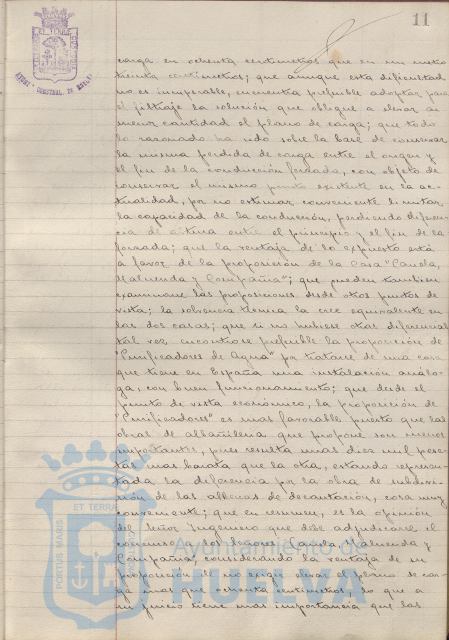 11
carga en ochenta centimetros que en un metro
treinta centimetros; que aunque esta dificultad
no es insuperable, encuentra preferible adoptar para
el filtraje la solución que obligue a elevar en
menor cantidad el plano de carga; que todo
lo razonado ha sido sobre la base de conservar
la misma perdida de carga entre el origen y
el fin de la conducción forzada, con objeto de
conservar el mismo existente en la ac-
tualidad, por no estimar conveniente limitar
la capacidad de la conducción, perdiendo diferen-
cia de altura entre el principio y el fin de la
forzada; que la ventaja de lo expuesto está
a favor de la proposición de la Casa "Candla,
Maluenda y Compañia"; que pueden tambien
examinarse las proposiciones desde otros puntos de
vista; la solvencia tecnica la cree equivalente en
las dos casas; que si no hubiese otras diferencias
tal vez encontrase preferible la proposición de
"Purificadores de Agua" por tratarse de una casa
que tiene en España una instalación análo-
ga, con buen funcionamiento; que desde el
punto de vista económico, la proposición de
"Purificadores" es mas favorable puesto que las
obras de albañileria que propone son menos
importantes, pues resulta unas diez mil pese-
tas mas barata que la otra, estando represen-
tada la diferencia por la obra de subdivi-
sión de las albercas de decantación, cosa muy
conveniente; que en resumen, es la opinión
del Señor Ingeniero que debe adjudicarse el
concurso a los Señores Maluenda y
Compañia, considerando la ventaja de su
proposición de no exigir elevar el plano de car-
ga mas que ochenta centimetros, lo que a
su juicio tiene mas importancia que las
PORTUS MARIS
ET TERRAE
Ayuntamiento de
HUELVA